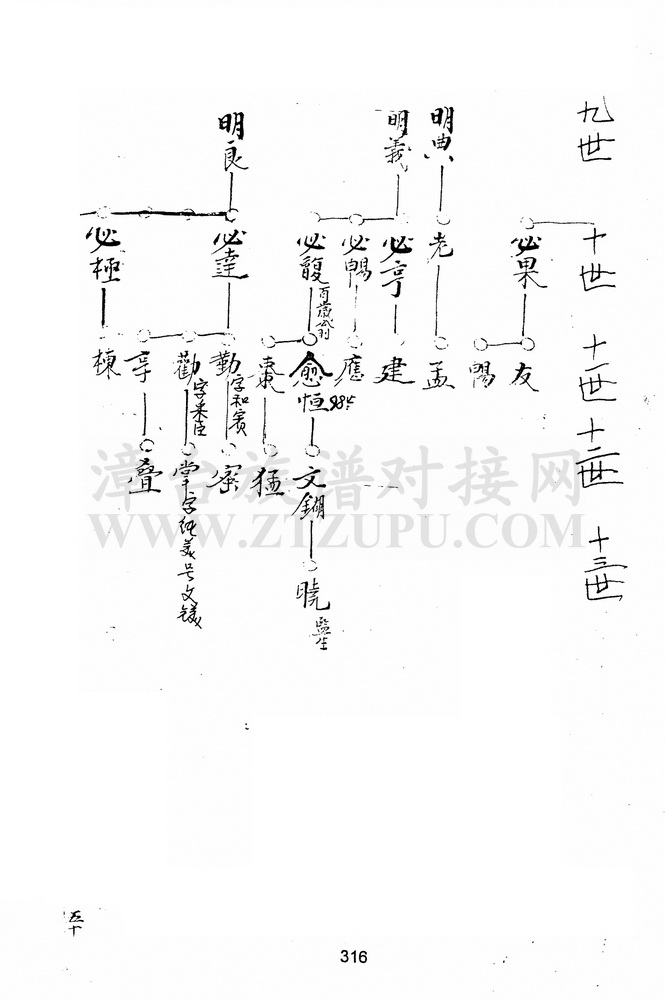 九世
十世
十一世
十二世
十三世
明典
明義
明良
必果
老
必亨
必暢
必馥
百歲翁
必達
必極
友
暢
孟
建
應
愈恒
985
棗
勤
字和賓
勸
字采臣
享
棟
文鎺
猛
寀
掌字純美号文錂
疊
曉
監生
漳台族谱对接网
WWW.ZTZUPU.COM
五十
316